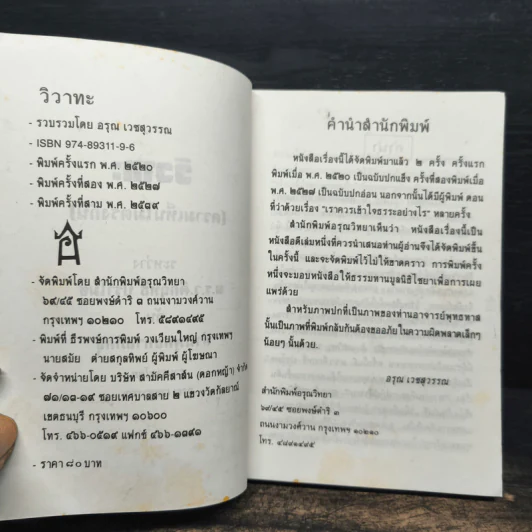 วิวาทะ
- รวบรวมโดย อรุณ เวชสุวรรณ
- ISBN 974-89311-9-6
- พิมพ์ครั้งแรก พ.ศ. ๒๕๒๐
- พิมพ์ครั้งที่สอง พ.ศ. ๒๕๒๘
- พิมพ์ครั้งที่สาม พ.ศ. ๒๕๓๙
- จัดพิมพ์โดย สำนักพิมพ์อรุณวิทยา
๖๙/๔๕ ซอยพงษ์ดำริ ๓ ถนนงามวงศ์วาน
กรุงเทพฯ ๑๐๒๑๐ โทร. ๕๘๙๑๔๙๕
- พิมพ์ที่ ธีรพงษ์การพิมพ์ วงเวียนใหญ่ กรุงเทพฯ
นายสมัย ต่ายสกุลทิพย์ ผู้พิมพ์ ผู้โฆษณา
- จัดจำหน่ายโดย บริษัท สามัคคีสาส์น (ดอกหญ้า) จำกัด
๘๑/๑๑-๑๙ ซอยเทศบาลสาย ๒ แขวงวัดกัลยาณ์
เขตธนบุรี กรุงเทพฯ ๑๐๖๐๐
โทร. ๔๖๖-๐๕๑๙ แฟกซ์ ๔๖๖-๑๓๙๑
- ราคา ๘๐ บาท
คำนำสำนักพิมพ์
หนังสือเรื่องนี้ได้จัดพิมพ์มาแล้ว ๒ ครั้ง ครั้งแรก
พิมพ์เมื่อ พ.ศ. ๒๕๒๐ เป็นฉบับปกแข็ง ครั้งที่สองพิมพ์เมื่อ
พ.ศ. ๒๕๒๘ เป็นฉบับปกอ่อน นอกจากนั้นได้มีผู้พิมพ์ ตอน
ที่ว่าด้วยเรื่อง "เราควรเข้าใจธรรมะอย่างไร" หลายครั้ง
สำนักพิมพ์อรุณวิทยาเห็นว่า หนังสือเรื่องนี้เป็น
หนังสือดีเล่มหนึ่งที่ควรนำเสนอท่านผู้อ่านจึงได้จัดพิมพ์ขึ้น
ในครั้งนี้ และจะจัดพิมพ์ไว้ไม่ให้ขาดคราว การพิมพ์ครั้ง
หนึ่งจะมอบหนังสือให้ธรรมทานมูลนิธิไชยาเพื่อการเผย
แพร่ด้วย
สำหรับภาพปกที่เป็นภาพของท่านอาจารย์พุทธทาส
นั้นเป็นภาพที่พิมพ์กลับกันต้องขออภัยในความผิดพลาดเล็กๆ
น้อยๆ นั้นด้วย.
อรุณ เวชสุวรรณ
สำนักพิมพ์อรุณวิทยา
๖๙/๔๕ ซอยพงษ์ดำริ ๓
ถนนงามวงศ์วาน กรุงเทพฯ ๑๐๒๑๐
โทร. ๕๘๙๑๔๙๕